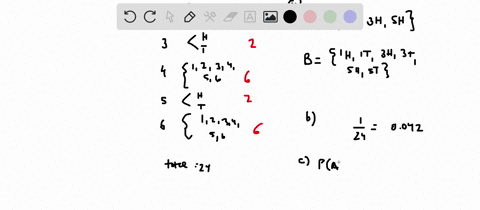 3 < H T 2
4 { 1, 2, 3, 4, 5, 6 6
5 < H T 2
6 { 1, 2, 3, 4, 5, 6 6
total : 24
3H, 5H }
B = { 1H, 1T, 3H, 3T, 5H, 5T }
b)
1/24 = 0.042
c) P(A